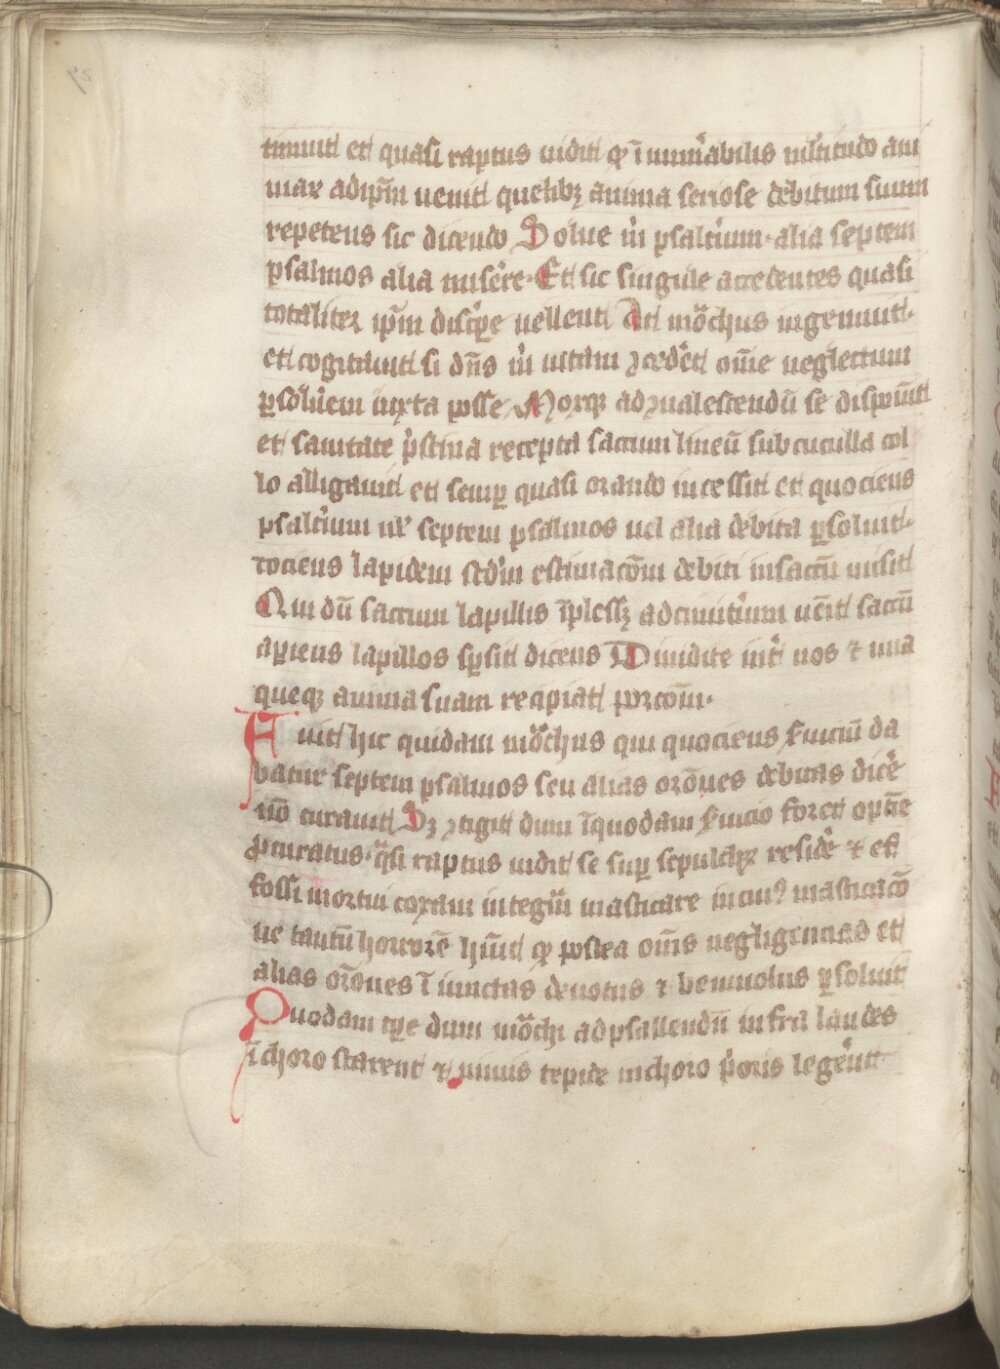 timuit et quasi raptus uidit ꝙ īnumͣabilis mͣltitudo ani
mar ad ip̄m uenit quelibꝫ anima seriose debitum suum
repetens sic dicendo Solue m̊ psaltͥium · alia septem
psalmos alia misere · Et sic singule accedentes quasi
totaliter ip̄m discͥpe uellent At moͣchus ingemuit ·
et cogitauit si dn̄s m̊ uitam ꝯcedͤet om̄e neglectum
ꝑsoluem iuxta posse Morqꝫ ad ꝯualescendū se disposuit
et sanitate pͥstina recepta saccum lineū sub cuculla col
lo alligauit et semꝑ quasi orando incessit et quociens
psaltͥium uͤ septem psalmos uel alia debita ꝑsoluit ·
tociens lapidem scd̾m estimacōm debiti in saccū misit
Qui dū saccum lapillis īplessꝫ ad cimitͥium uēit saccū
aꝑiens lapillos sꝑsit dicens Diuidite intͥ uos ⁊ una
queqꝫ anima suam recipiat porcōm ·
Fuit hic quidam moͣchus qui quociens ẜuiciū da
batur septem psalmos seu alias orōnes debitas dicͤe
nō curauit Sꝫ ꝯtigit dum īquodam ẜuicio foret optīe
ꝓcuratus · qͣsi raptus uidit se suꝑ sepulchꝝ residͤe ⁊ ef
fossi mortui coxam integrū masticare in cuiꝰ masticacō
ne tantū horrorē hūit ꝙ postea om̄s negligencias et
alias orōnes īiunctas deuotus ⁊ beniuolus ꝑsoluit
Quodam tꝑe dum moͣchi ad psallendū infra laudes
ī choro starent ⁊ unus tepide in choro pͥoris legerͤit